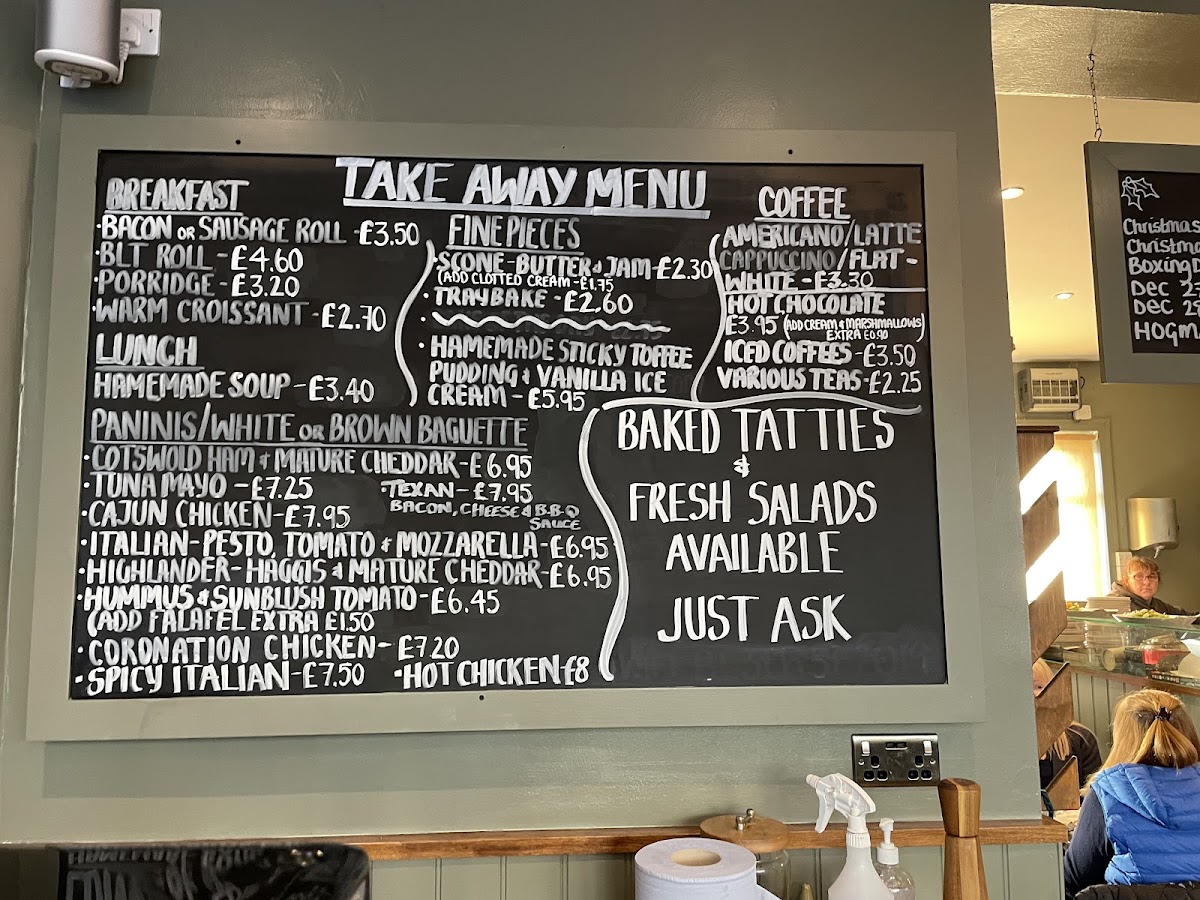 TAKE AWAY MENU
BREAKFAST
·BACON OR SAUSAGE ROLL -£3.50
·BLT ROLL - £4.60
·PORRIDGE - £3.20
·WARM CROISSANT - £2.70
LUNCH
HAMEMADE SOUP - £3.40
PANINIS/WHITE OR BROWN BAGUETTE
·COTSWOLD HAM & MATURE CHEDDAR-£6.95
·TUNA MAYO -£7.25
·TEXAN - £7.95
BACON, CHEESE & B.B.Q
SAUCE
·CAJUN CHICKEN-£7.95
·ITALIAN-PESTO, TOMATO & MOZZARELLA-£6.95
·HIGHLANDER-HAGGIS & MATURE CHEDDAR-£6.95
·HUMMUS & SUNBLUSH TOMATO-£6.45
(ADD FALAFEL EXTRA £1.50
·CORONATION CHICKEN- £7.20
·SPICY ITALIAN-£7.50
·HOT CHICKEN £8
FINE PIECES
·SCONE-BUTTER & JAM-£2.30
(ADD CLOTTED CREAM -£1.75
·TRAYBAKE - £2.60
·HAMEMADE STICKY TOFFEE
PUDDING & VANILLA ICE
CREAM - £5.95
COFFEE
AMERICANO/LATTE
CAPPUCCINO/FLAT-
WHITE - £3.30
HOT CHOCOLATE
£3.95 (ADD CREAM & MARSHMALLOWS)
EXTRA £0.90
ICED COFFEES -£3.50
VARIOUS TEAS -£2.25
BAKED TATTIES
&
FRESH SALADS
AVAILABLE
JUST ASK
Christmas
Boxing
Dec
Dec